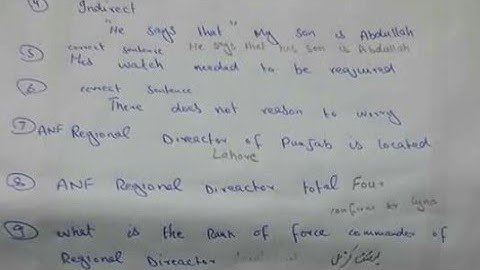 (4) Indirect
"He says that" My son is Abdullah
(5) correct sentence He says that his son is Abdullah
His watch needed to be required
(6) correct sentence
There does not reason to worry
(7) ANF Regional Direactor of Punjab is located
Lahore
(8) ANF Regional Direactor total Four
confirm by
(9) what is the Rank of force commander of
Regional Direactor